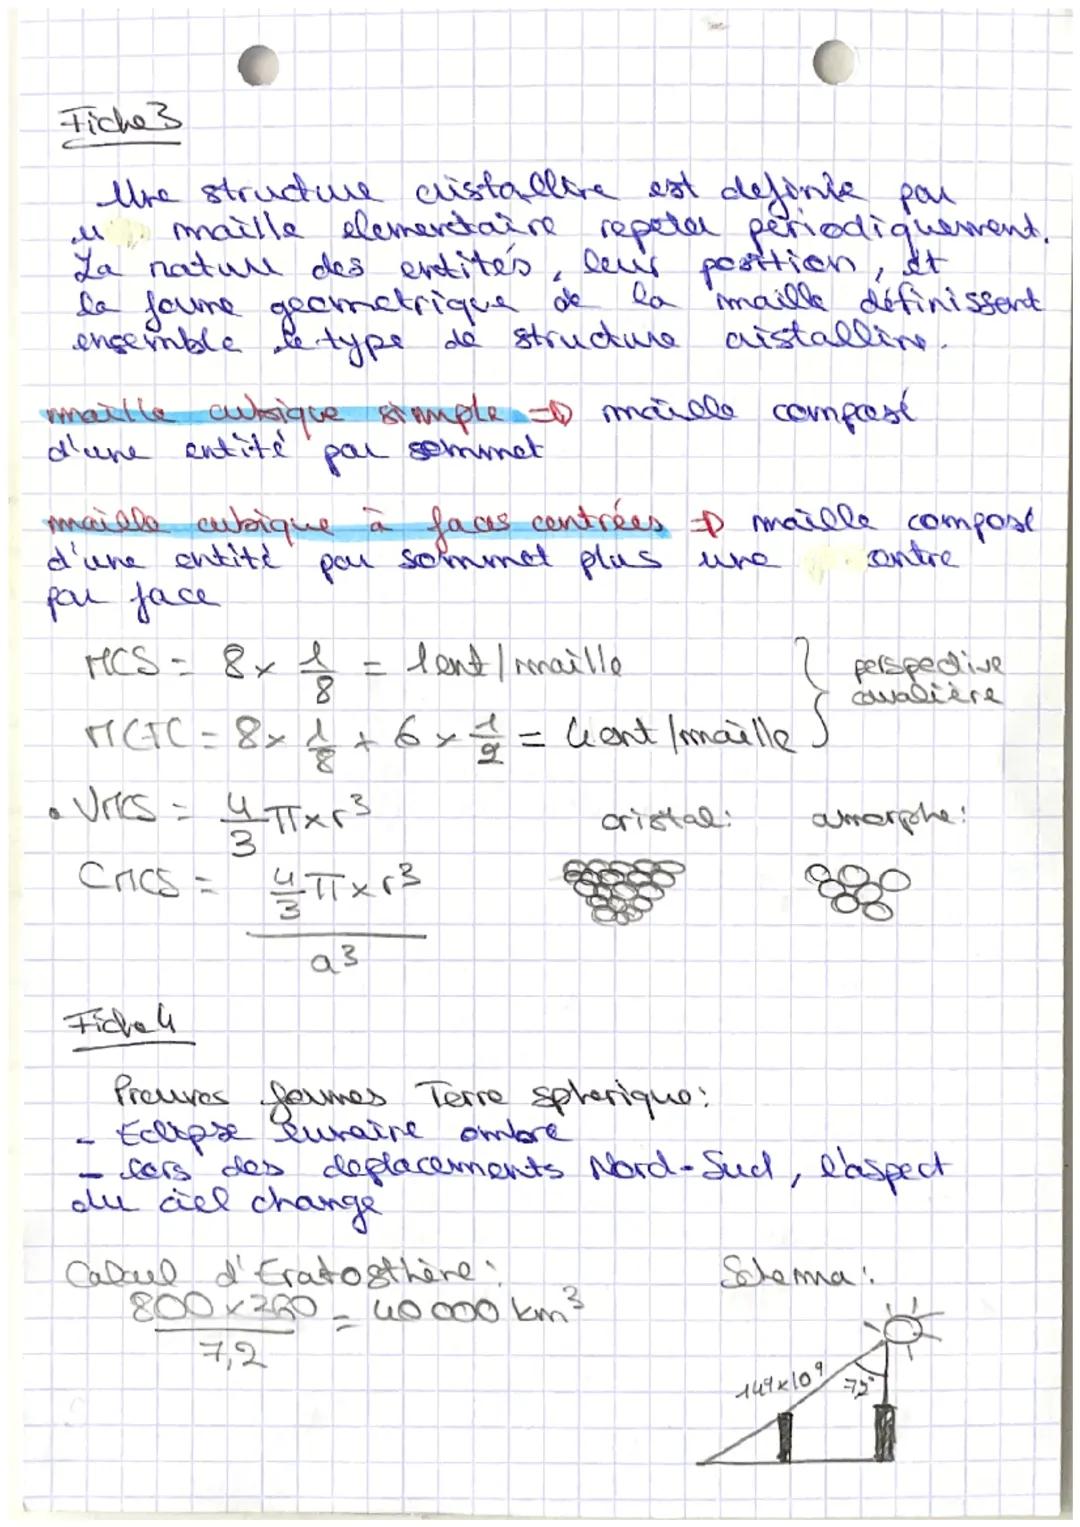 Fiche 3
Une structure cristalline est definie par
u maille elementaire repeter périodiquement.
La nature des entités, leur position, et
la forme geometrique de la maille définissent
ensemble le type de structure cristalline.
maille cubique simple => maille composé
d'une entité par sommet
maille cubique à faces centrées => maille composé
d'une entité par sommet plus une centre
par face
MCS = 8 × 1/8 = 1 ent/maille
MCFC = 8 × 1/8 + 6 × 1/2 = 4 ent/maille } perspective cavalière
• VMCS = 4/3 π × r³
cristal: amorphe:
CMCS = (4/3 π × r³) / a³
Fiche 4
Preuves formes Terre spherique:
- Eclipse lunaire ombre
- lors des deplacements Nord-Sud, l'aspect
du ciel change
Calcul d'Eratosthène:
800 × 360 / 7,2 = 40 000 km³
Schema:
149×10⁹ 7,2°